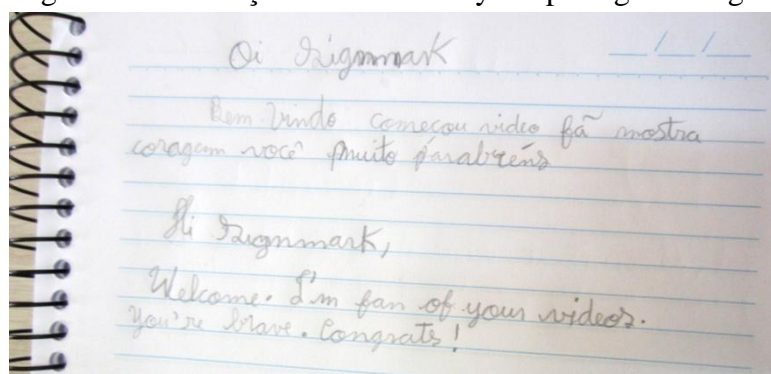 Oi Signmark
__/__/__
Bem Vindo começou video fã mostra
coragem você muito parabréns
Hi Signmark,
Welcome. I'm fan of your videos.
You're brave. Congrats!